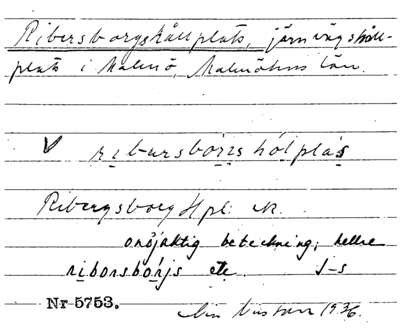 Ribersborgshållplats, järnvägshåll-
plats i Malmö, Malmöhus län.
V ribursbórjs hólplás
Ribersborg Hpl.
onöjaktig beteckning; hellre
riborsbórjs etc. J-s
Nr 5753. 1936.